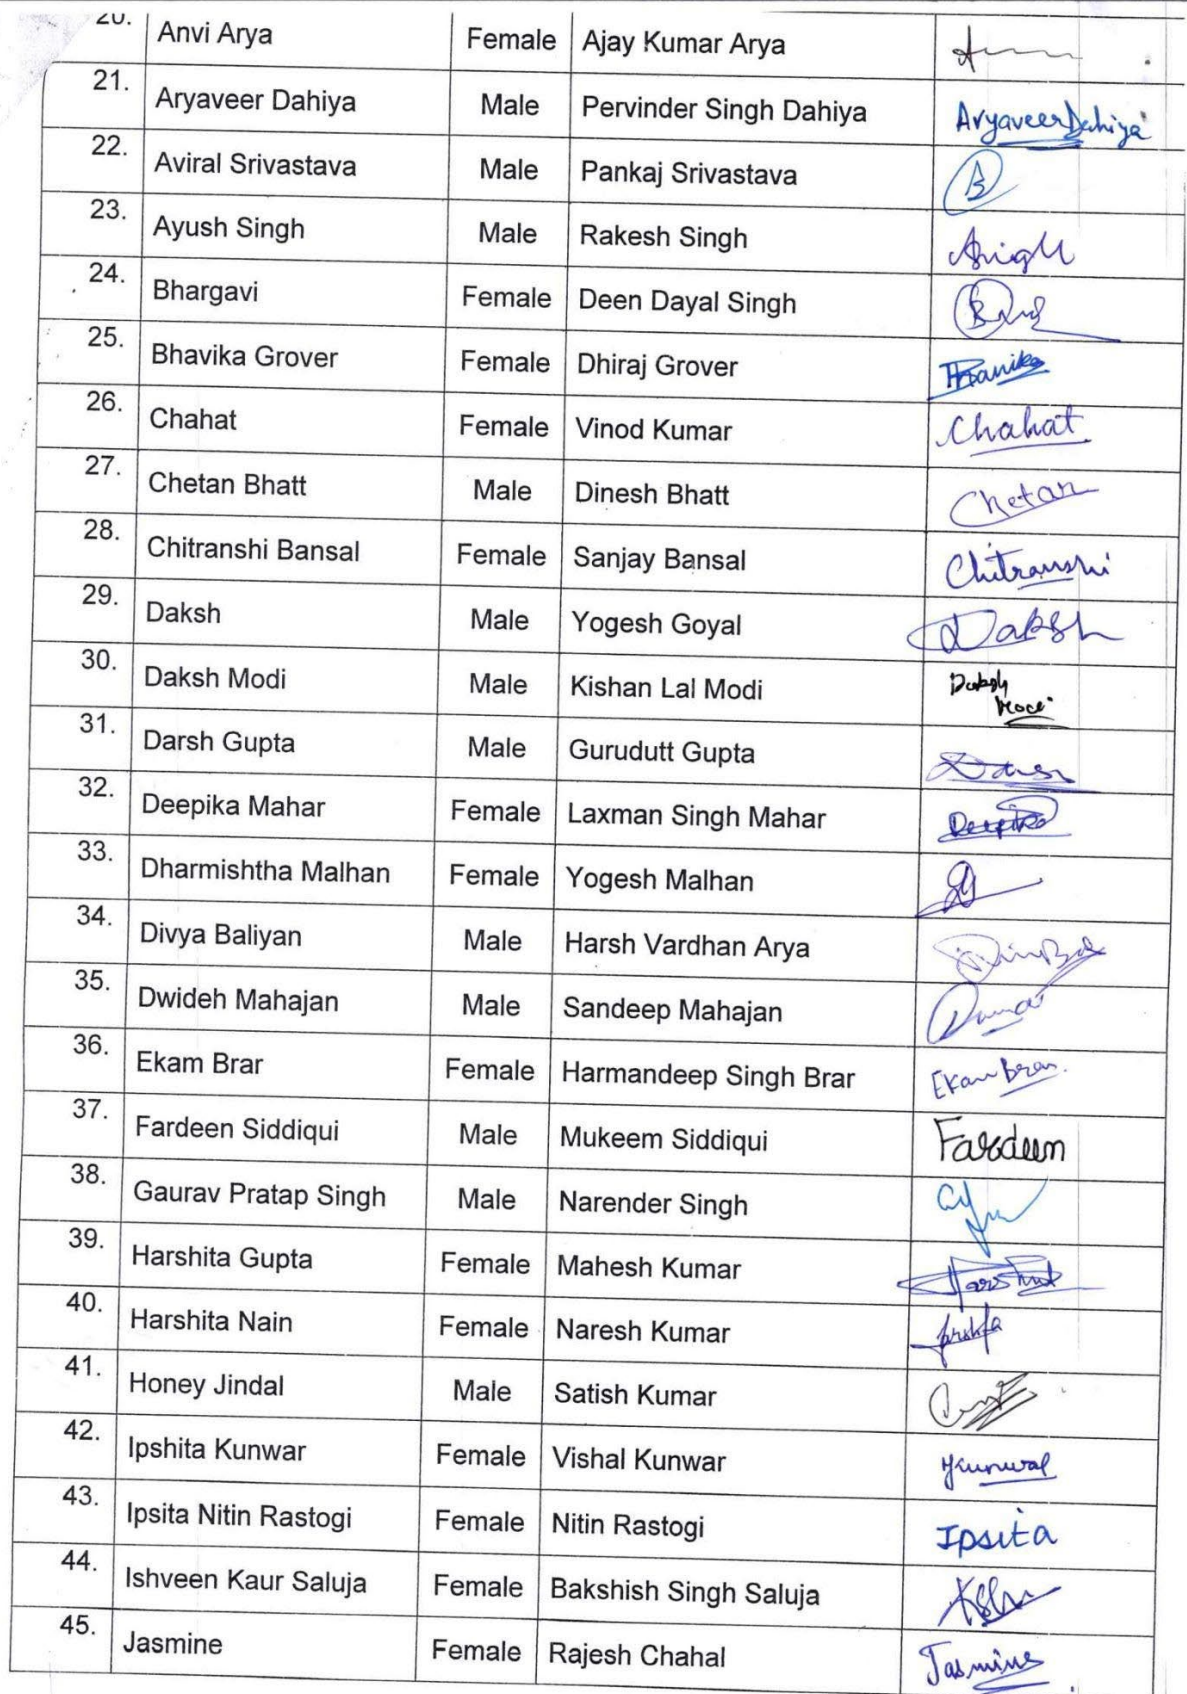 20. Anvi Arya Female Ajay Kumar Arya
21. Aryaveer Dahiya Male Pervinder Singh Dahiya AryaveerDahiya
22. Aviral Srivastava Male Pankaj Srivastava
23. Ayush Singh Male Rakesh Singh
24. Bhargavi Female Deen Dayal Singh
25. Bhavika Grover Female Dhiraj Grover
26. Chahat Female Vinod Kumar Chahat
27. Chetan Bhatt Male Dinesh Bhatt Chetan
28. Chitranshi Bansal Female Sanjay Bansal Chitranshi
29. Daksh Male Yogesh Goyal Daksh
30. Daksh Modi Male Kishan Lal Modi Daksh Modi
31. Darsh Gupta Male Gurudutt Gupta
32. Deepika Mahar Female Laxman Singh Mahar Deepika
33. Dharmishtha Malhan Female Yogesh Malhan
34. Divya Baliyan Male Harsh Vardhan Arya
35. Dwideh Mahajan Male Sandeep Mahajan
36. Ekam Brar Female Harmandeep Singh Brar Ekam Brar.
37. Fardeen Siddiqui Male Mukeem Siddiqui Fardeen
38. Gaurav Pratap Singh Male Narender Singh
39. Harshita Gupta Female Mahesh Kumar
40. Harshita Nain Female Naresh Kumar
41. Honey Jindal Male Satish Kumar
42. Ipshita Kunwar Female Vishal Kunwar
43. Ipsita Nitin Rastogi Female Nitin Rastogi Ipsita
44. Ishveen Kaur Saluja Female Bakshish Singh Saluja
45. Jasmine Female Rajesh Chahal Jasmine